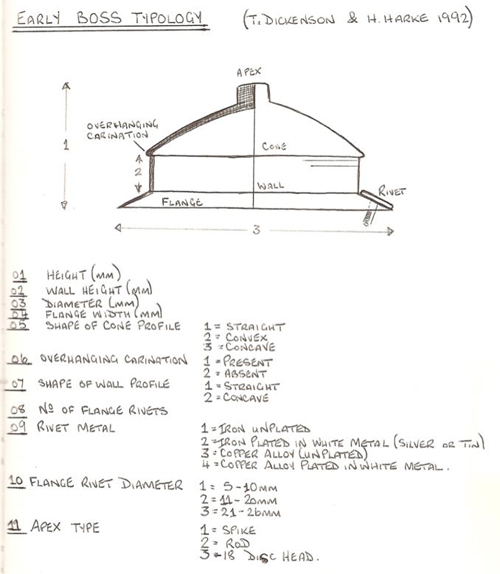 EARLY BOSS TYPOLOGY (T. DICKENSON & H. HARKE 1992)
APEX
OVERHANGING
CARINATION
1
CONE
2
WALL
RIVET
FLANGE
3
01 HEIGHT (MM)
02 WALL HEIGHT (MM)
03 DIAMETER (MM)
04 FLANGE WIDTH (MM)
05 SHAPE OF CONE PROFILE 1 = STRAIGHT
2 = CONVEX
3 = CONCAVE
06 OVERHANGING CARINATION 1 = PRESENT
2 = ABSENT
07 SHAPE OF WALL PROFILE 1 = STRAIGHT
2 = CONCAVE
08 Nº OF FLANGE RIVETS
09 RIVET METAL 1 = IRON UNPLATED
2 = IRON PLATED IN WHITE METAL (SILVER OR TIN)
3 = COPPER ALLOY (UNPLATED)
4 = COPPER ALLOY PLATED IN WHITE METAL.
10 FLANGE RIVET DIAMETER 1 = 5-10MM
2 = 11-20MM
3 = 21-26MM
11 APEX TYPE 1 = SPIKE
2 = ROD
3-18 DISC HEAD.